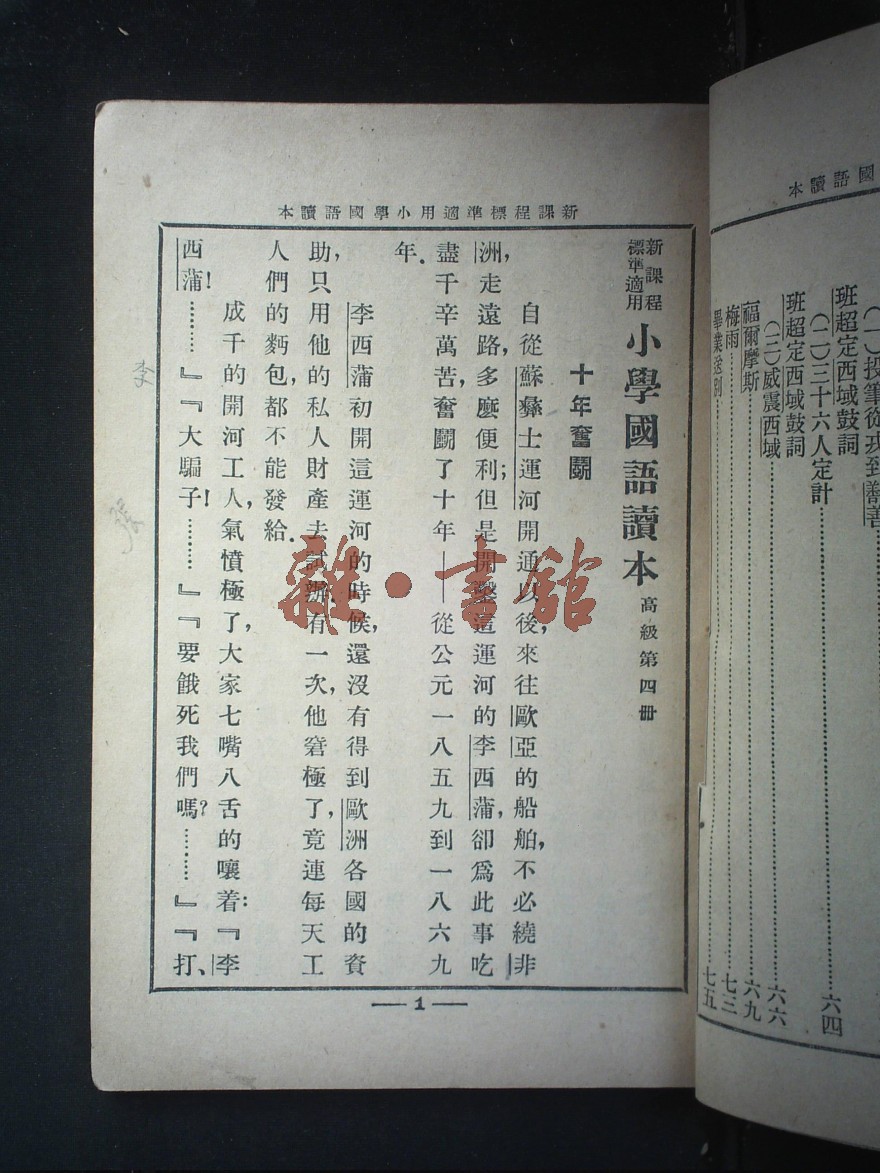 國語讀本
(一)投筆從戎到鄯善
班超定西域鼓詞
(二)三十六人定計……六四
班超定西域鼓詞
(三)威震西域……六六
福爾摩斯……六九
梅雨……七三
畢業送別……七五
新課程標準適用小學國語讀本
新課程標準適用 小學國語讀本 高級第四冊
十年奮鬭
自從蘇彝士運河開通以後,來往歐亞的船舶,不必繞非
洲,走遠路,多麼便利;但是開鑿這運河的李西蒲,卻爲此事吃
盡千辛萬苦,奮鬭了十年——從公元一八五九到一八六九
年.
李西蒲初開這運河的時候,還沒有得到歐洲各國的資
助,只用他的私人財產去試辦.有一次,他窘極了,竟連每天工
人們的麪包,都不能發給.
成千的開河工人,氣憤極了,大家七嘴八舌的嚷着:『李
西蒲!………』『大騙子!………』『要餓死我們嗎?………』『打、
—1—
李
雜·書館